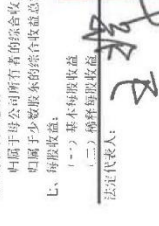 归属于母公司所有者的综合收
归属于少数股东的综合收益总
七、每股收益：
（一）基本每股收益
（二）稀释每股收益
法定代表人：